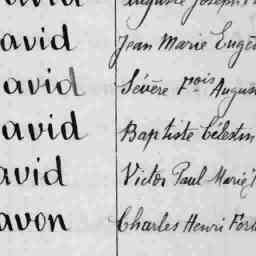 avid Jean Marie Eugè
avid Sévère Fçois Augus
avid Baptiste Célestin
avid Victor Paul Marie
avon Charles Henri For